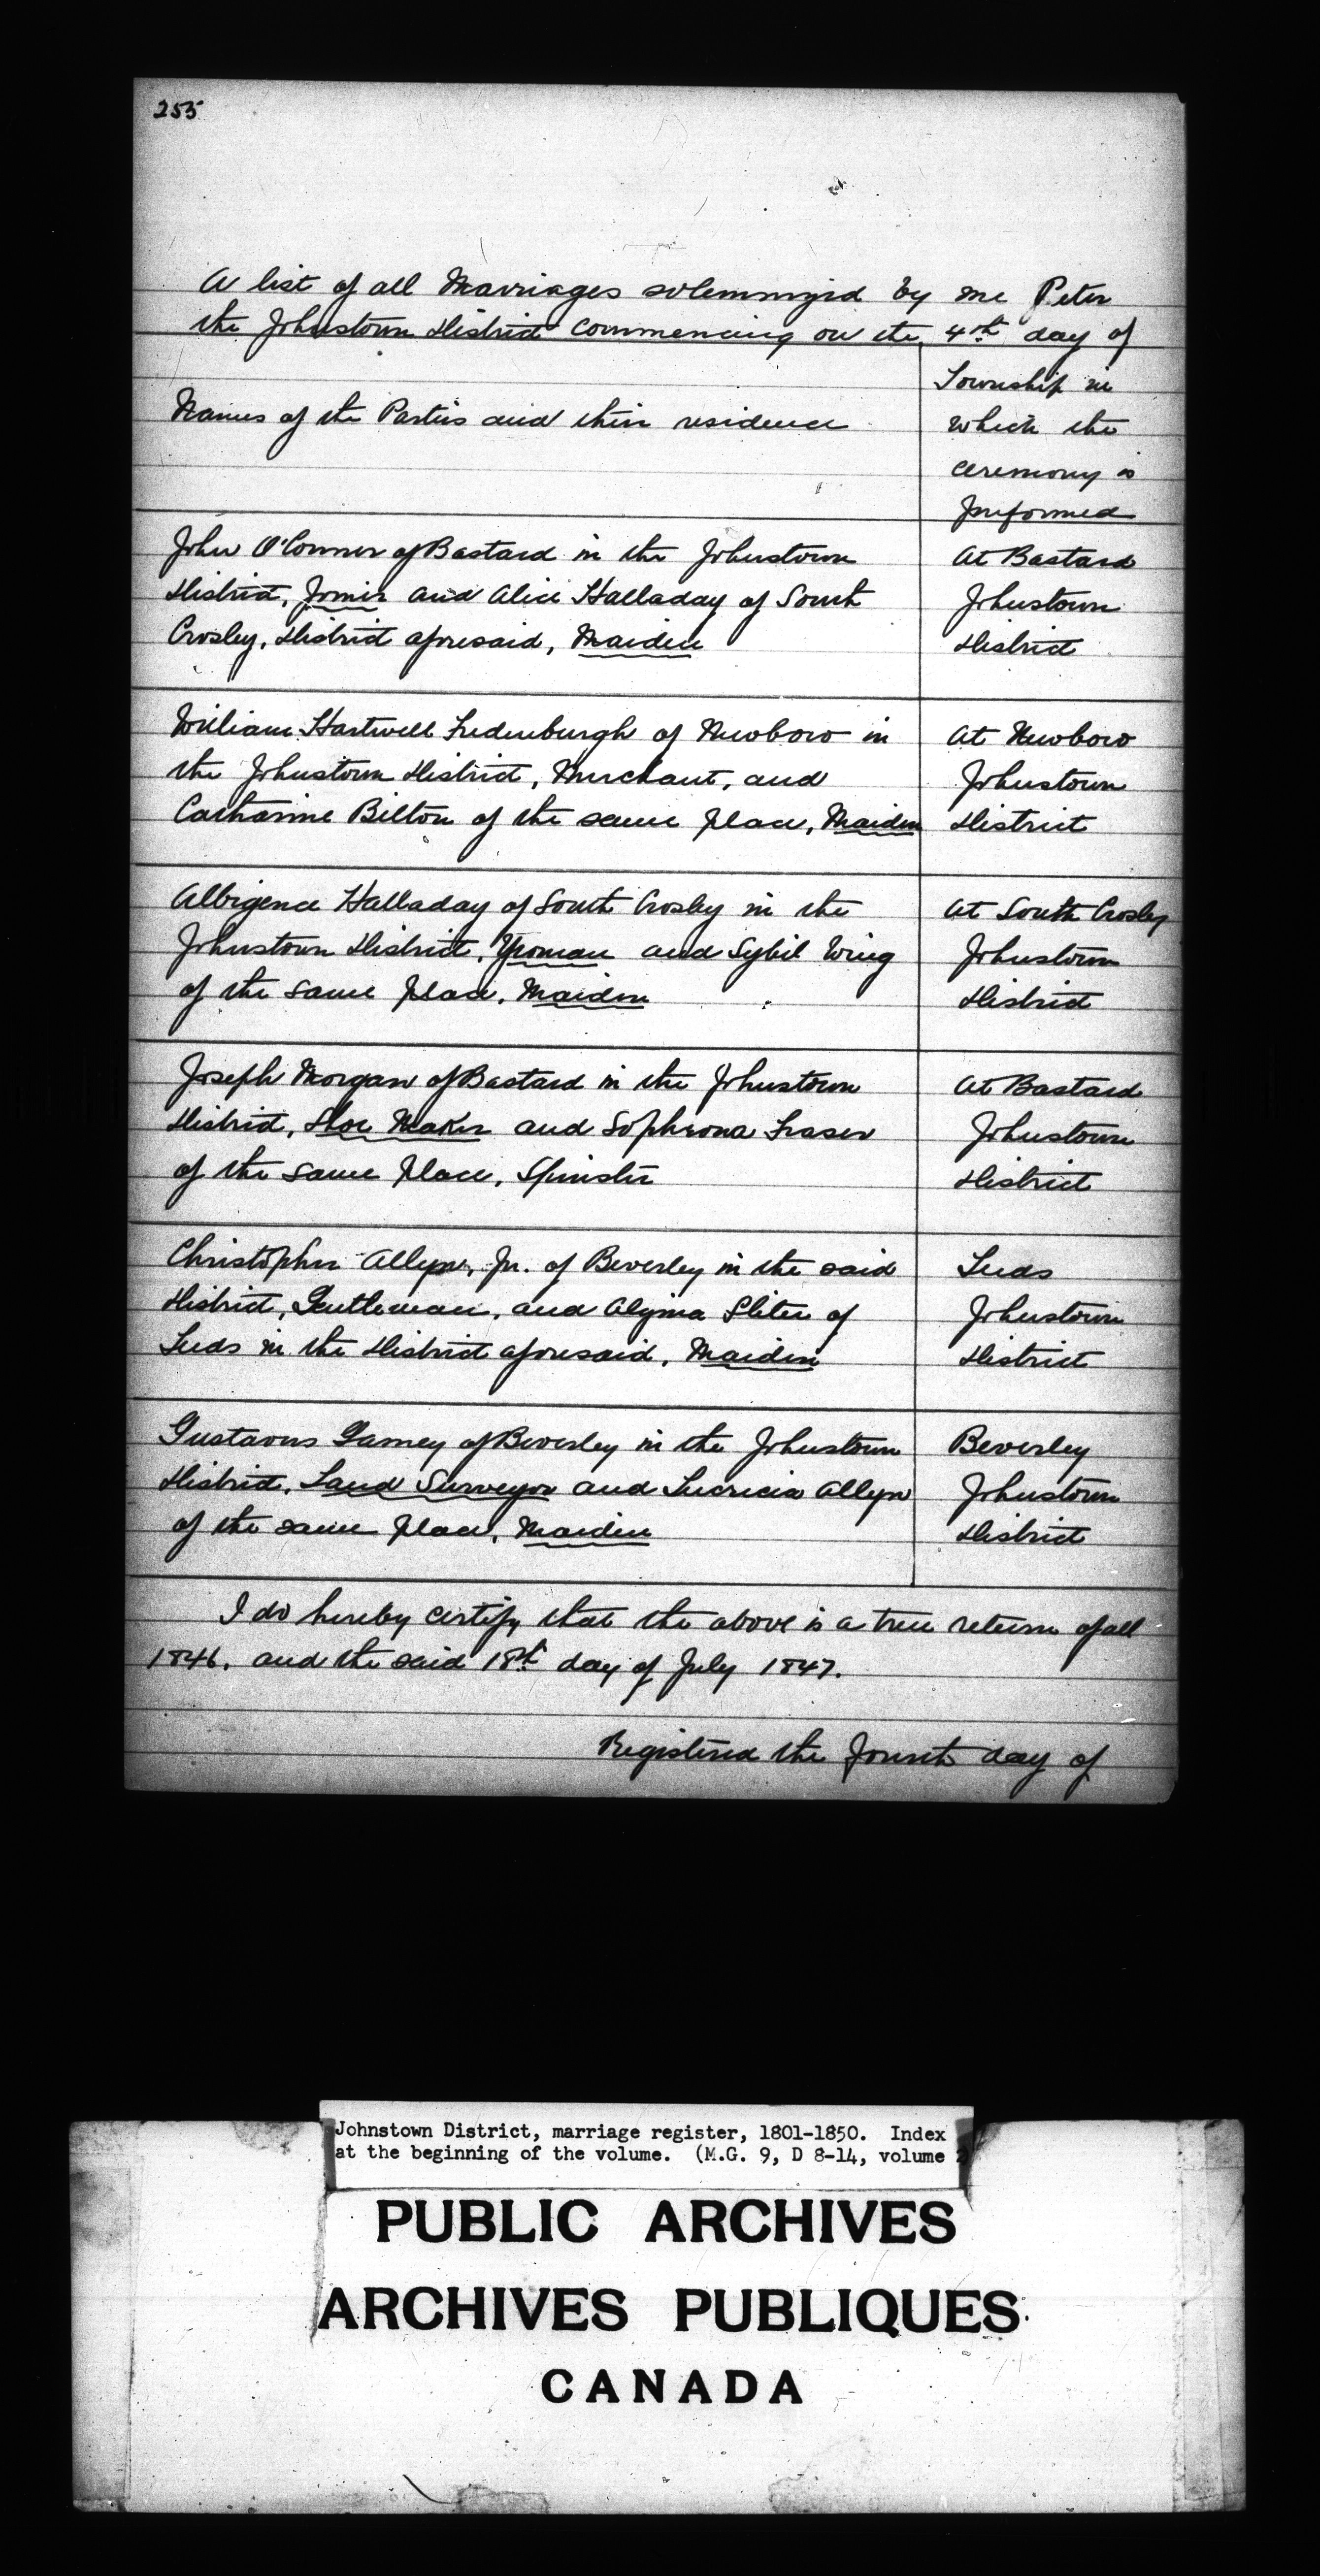 255
A list of all Marriages solemnized by me Peter
the Johnstown District commencing on the 4th day of
Names of the Parties and their residence
Township in
which the
ceremony is
performed
John O'Conner of Bastard in the Johnstown
District, Joiner and Alice Halladay of South
Crosley, District aforesaid, Maiden
At Bastard
Johnstown
District
William Hartwell Fredenburgh of Newboro in
the Johnstown District, Merchant, and
Catharine Bilton of the same place, Maiden
At Newboro
Johnstown
District
Albigence Halladay of South Crosby in the
Johnstown District, Yeoman and Sybil Wing
of the same place, Maiden
At South Crosby
Johnstown
District
Joseph Morgan of Bastard in the Johnstown
District, Shoe Maker and Sophrona Fraser
of the same place, Spinster
At Bastard
Johnstown
District
Christopher Allyn, Jr. of Beverley in the said
District, Gentleman, and Alzina Sliter of
Leeds in the District aforesaid, Maiden
Leeds
Johnstown
District
Gustavus of Beverley in the Johnstown
District, Land Surveyor and Lucricia Allyn
of the same place, Maiden
Beverley
Johnstown
District
I do hereby certify that the above is a true return of all
1846. and the said 18th day of July 1847.
Registered the fourth day of
Johnstown District, marriage register, 1801-1850. Index
at the beginning of the volume. (M.G. 9, D 8-14, volume
PUBLIC ARCHIVES
ARCHIVES PUBLIQUES
CANADA